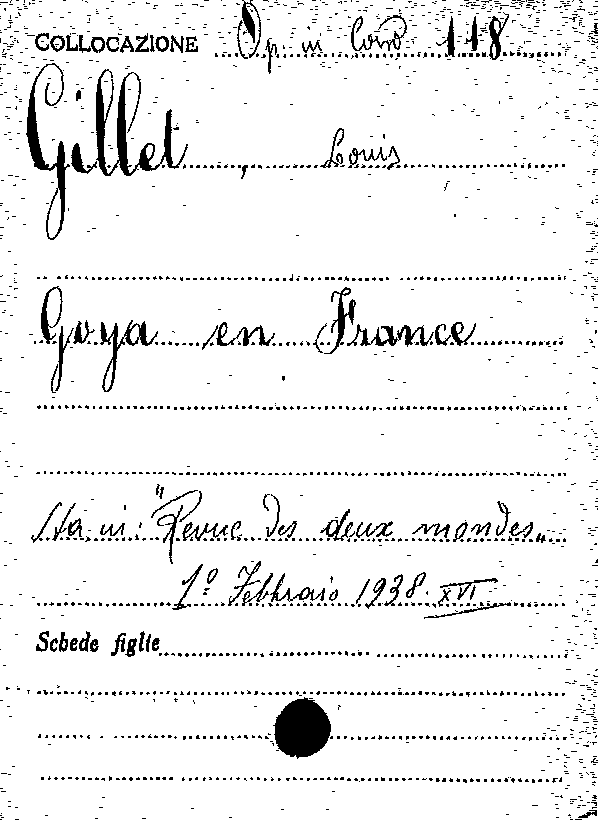 COLLOCAZIONE Op. in Cons 118
Gillet, Louis
Goya en France
Sta in: "Revue des deux mondes„
1º Febbraio 1938. XVI
Schede figlie